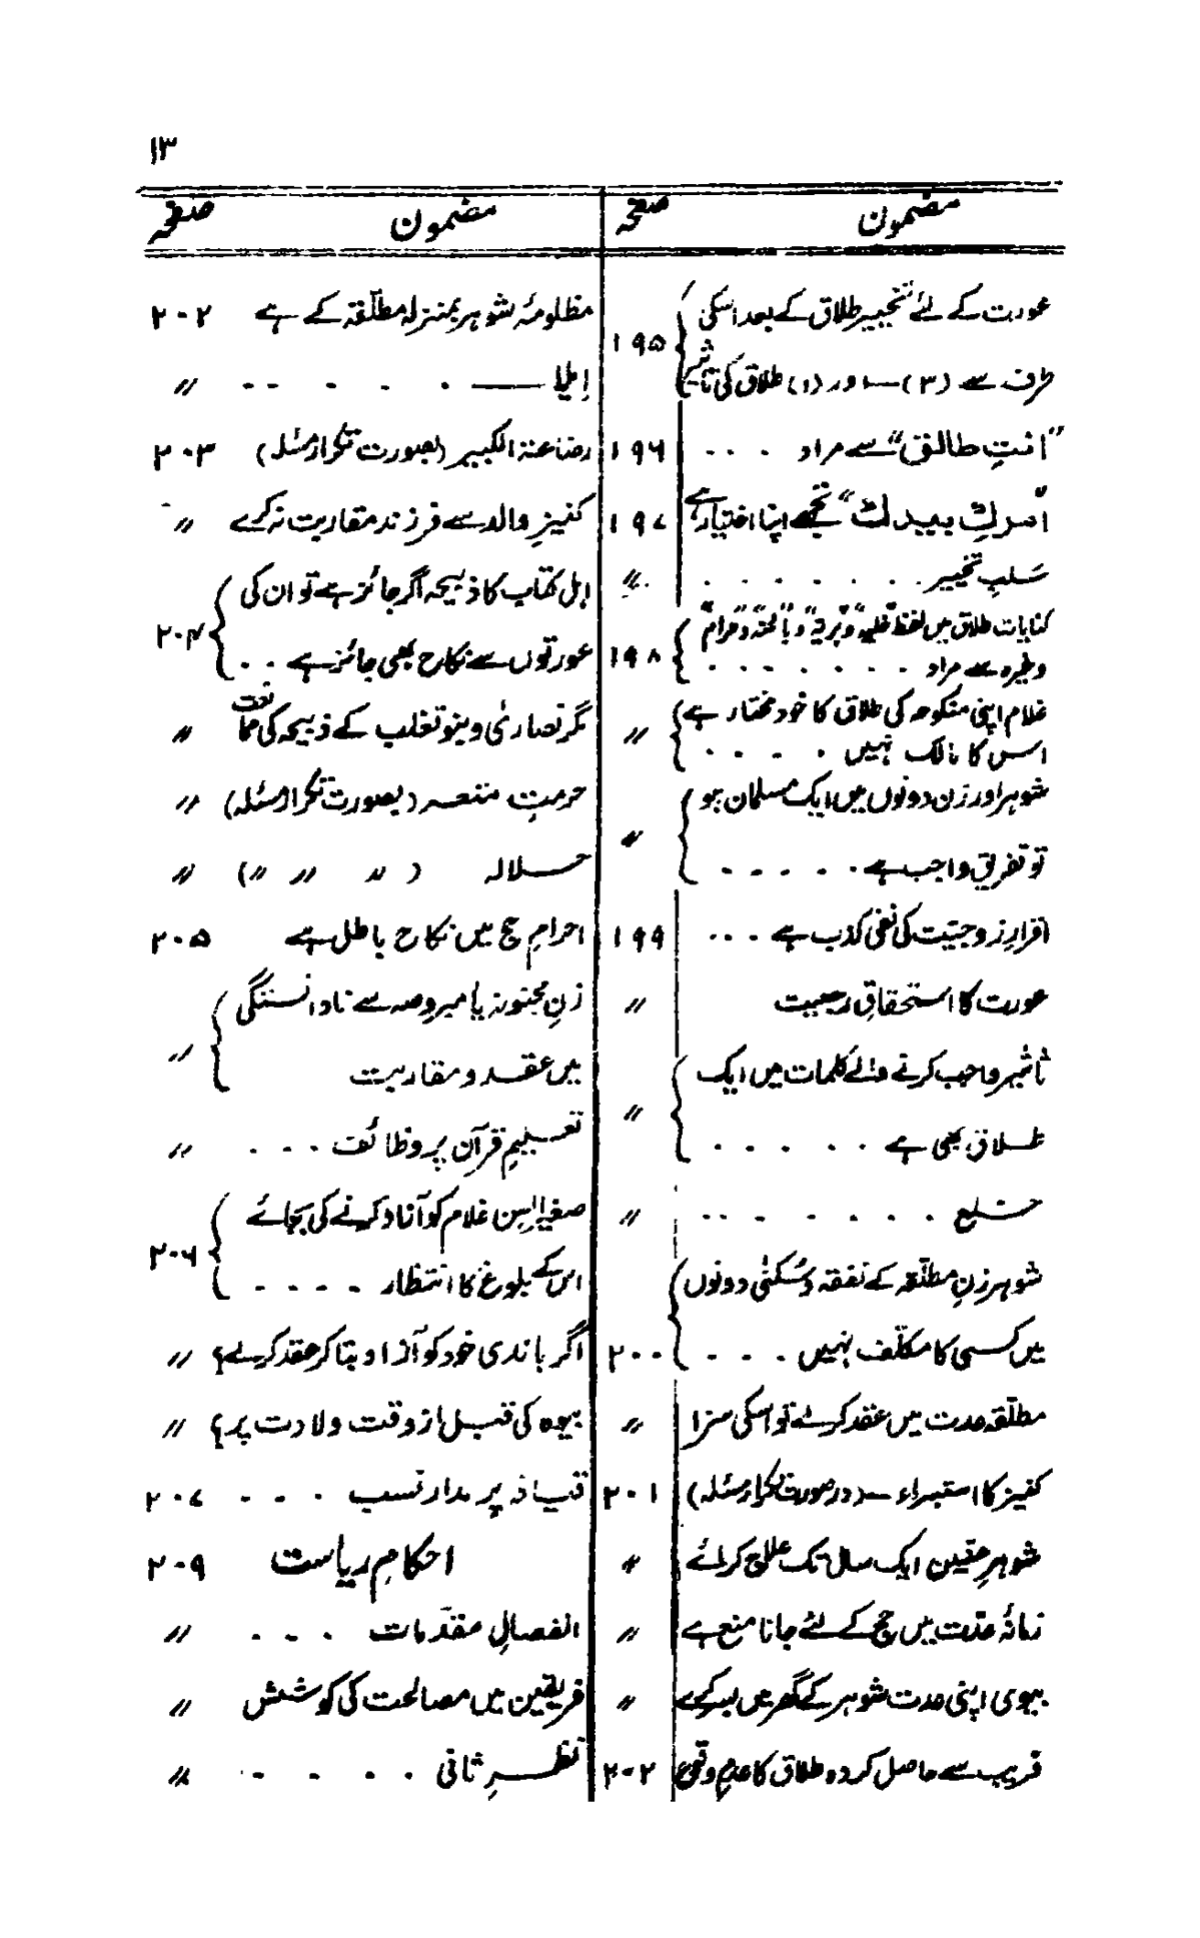 ۱۳
مضمون صفحہ
عورت کے لئے تخییر طلاق کے بعد اسکی
طرف سے (۳) — اور (۱) طلاق کی تاثیر ۱۹۵
"انتِ طالق" سے مراد . . . ۱۹۶
"امرکِ بیدک" تجھے اپنا اختیار ہے ۱۹۷
سَلبِ تخییر . . . . . . . . 〃
کنایات طلاق میں لفظ "خلیہ" و "بریہ" و "بائنہ" و "حرام"
وغیرہ سے مراد . . . . . . . ۱۹۸
غلام اپنی منکوحہ کی طلاق کا خود مختار ہے
اس کا مالک نہیں . . . . 〃
شوہر اور زن دونوں میں ایک مسلمان ہو
تو تفریق واجب ہے . . . . . 〃
اقرارِ زوجیت کی نفی کذب ہے . . . ۱۹۹
عورت کا استحقاقِ رجعیت 〃
تاثیر واجب کرنے والے کلمات میں ایک
طلاق بھی ہے . . . . . 〃
خلع . . . . . . . 〃
شوہر زنِ مطلّقہ کے نفقہ و سُکنیٰ دونوں
میں کسی کا مکلّف نہیں . . . ۲۰۰
مطلّقہ عدت میں عقد کرلے تو اسکی سزا 〃
کنیز کا استبراء — (در صورت تکرار مسئلہ) ۲۰۱
شوہرِ عنین ایک سال تک علاج کرائے 〃
زمانۂ عدّت میں حج کے لئے جانا منع ہے 〃
بیوی اپنی عدت شوہر کے گھر میں بسر کرے 〃
فریب سے حاصل کردہ طلاق کا عدم وقوع ۲۰۲
مضمون صفحہ
مظلومۂ شوہر بمنزلہ مطلّقہ کے ہے ۲۰۲
اِیلا — . . . . . 〃
رضاعۃ الکبیر (بصورت تکرار مسئلہ) ۲۰۳
کنیزِ والد سے فرزند مقاربت نہ کرے 〃
اہل کتاب کا ذبیحہ اگر جائز ہے تو ان کی
عورتوں سے نکاح بھی جائز ہے . . ۲۰۴
مگر نصاریٰ و بنو تغلب کے ذبیحہ کی ممانعت 〃
حرمتِ متعہ (بصورت تکرار مسئلہ) 〃
حلالہ ( 〃 〃 〃 ) 〃
احرامِ حج میں نکاح باطل ہے ۲۰۵
زنِ مجنونہ یا مبروصہ سے نادانستگی
میں عقد و مقاربت 〃
تعلیمِ قرآن پر وظائف . . . 〃
صغیر السِن غلام کو آزاد کرنے کی بجائے
اس کے بلوغ کا انتظار . . . . ۲۰۶
اگر باندی خود کو آزاد بتا کر عقد کرلے؟ 〃
بیوہ کی قبل از وقت ولادت پر؟ 〃
قیافہ پر مدار نسب . . . ۲۰۷
احکامِ ریاست ۲۰۹
انفصالِ مقدّمات . . . 〃
فریقین میں مصالحت کی کوشش 〃
نظرِ ثانی . . . . . 〃